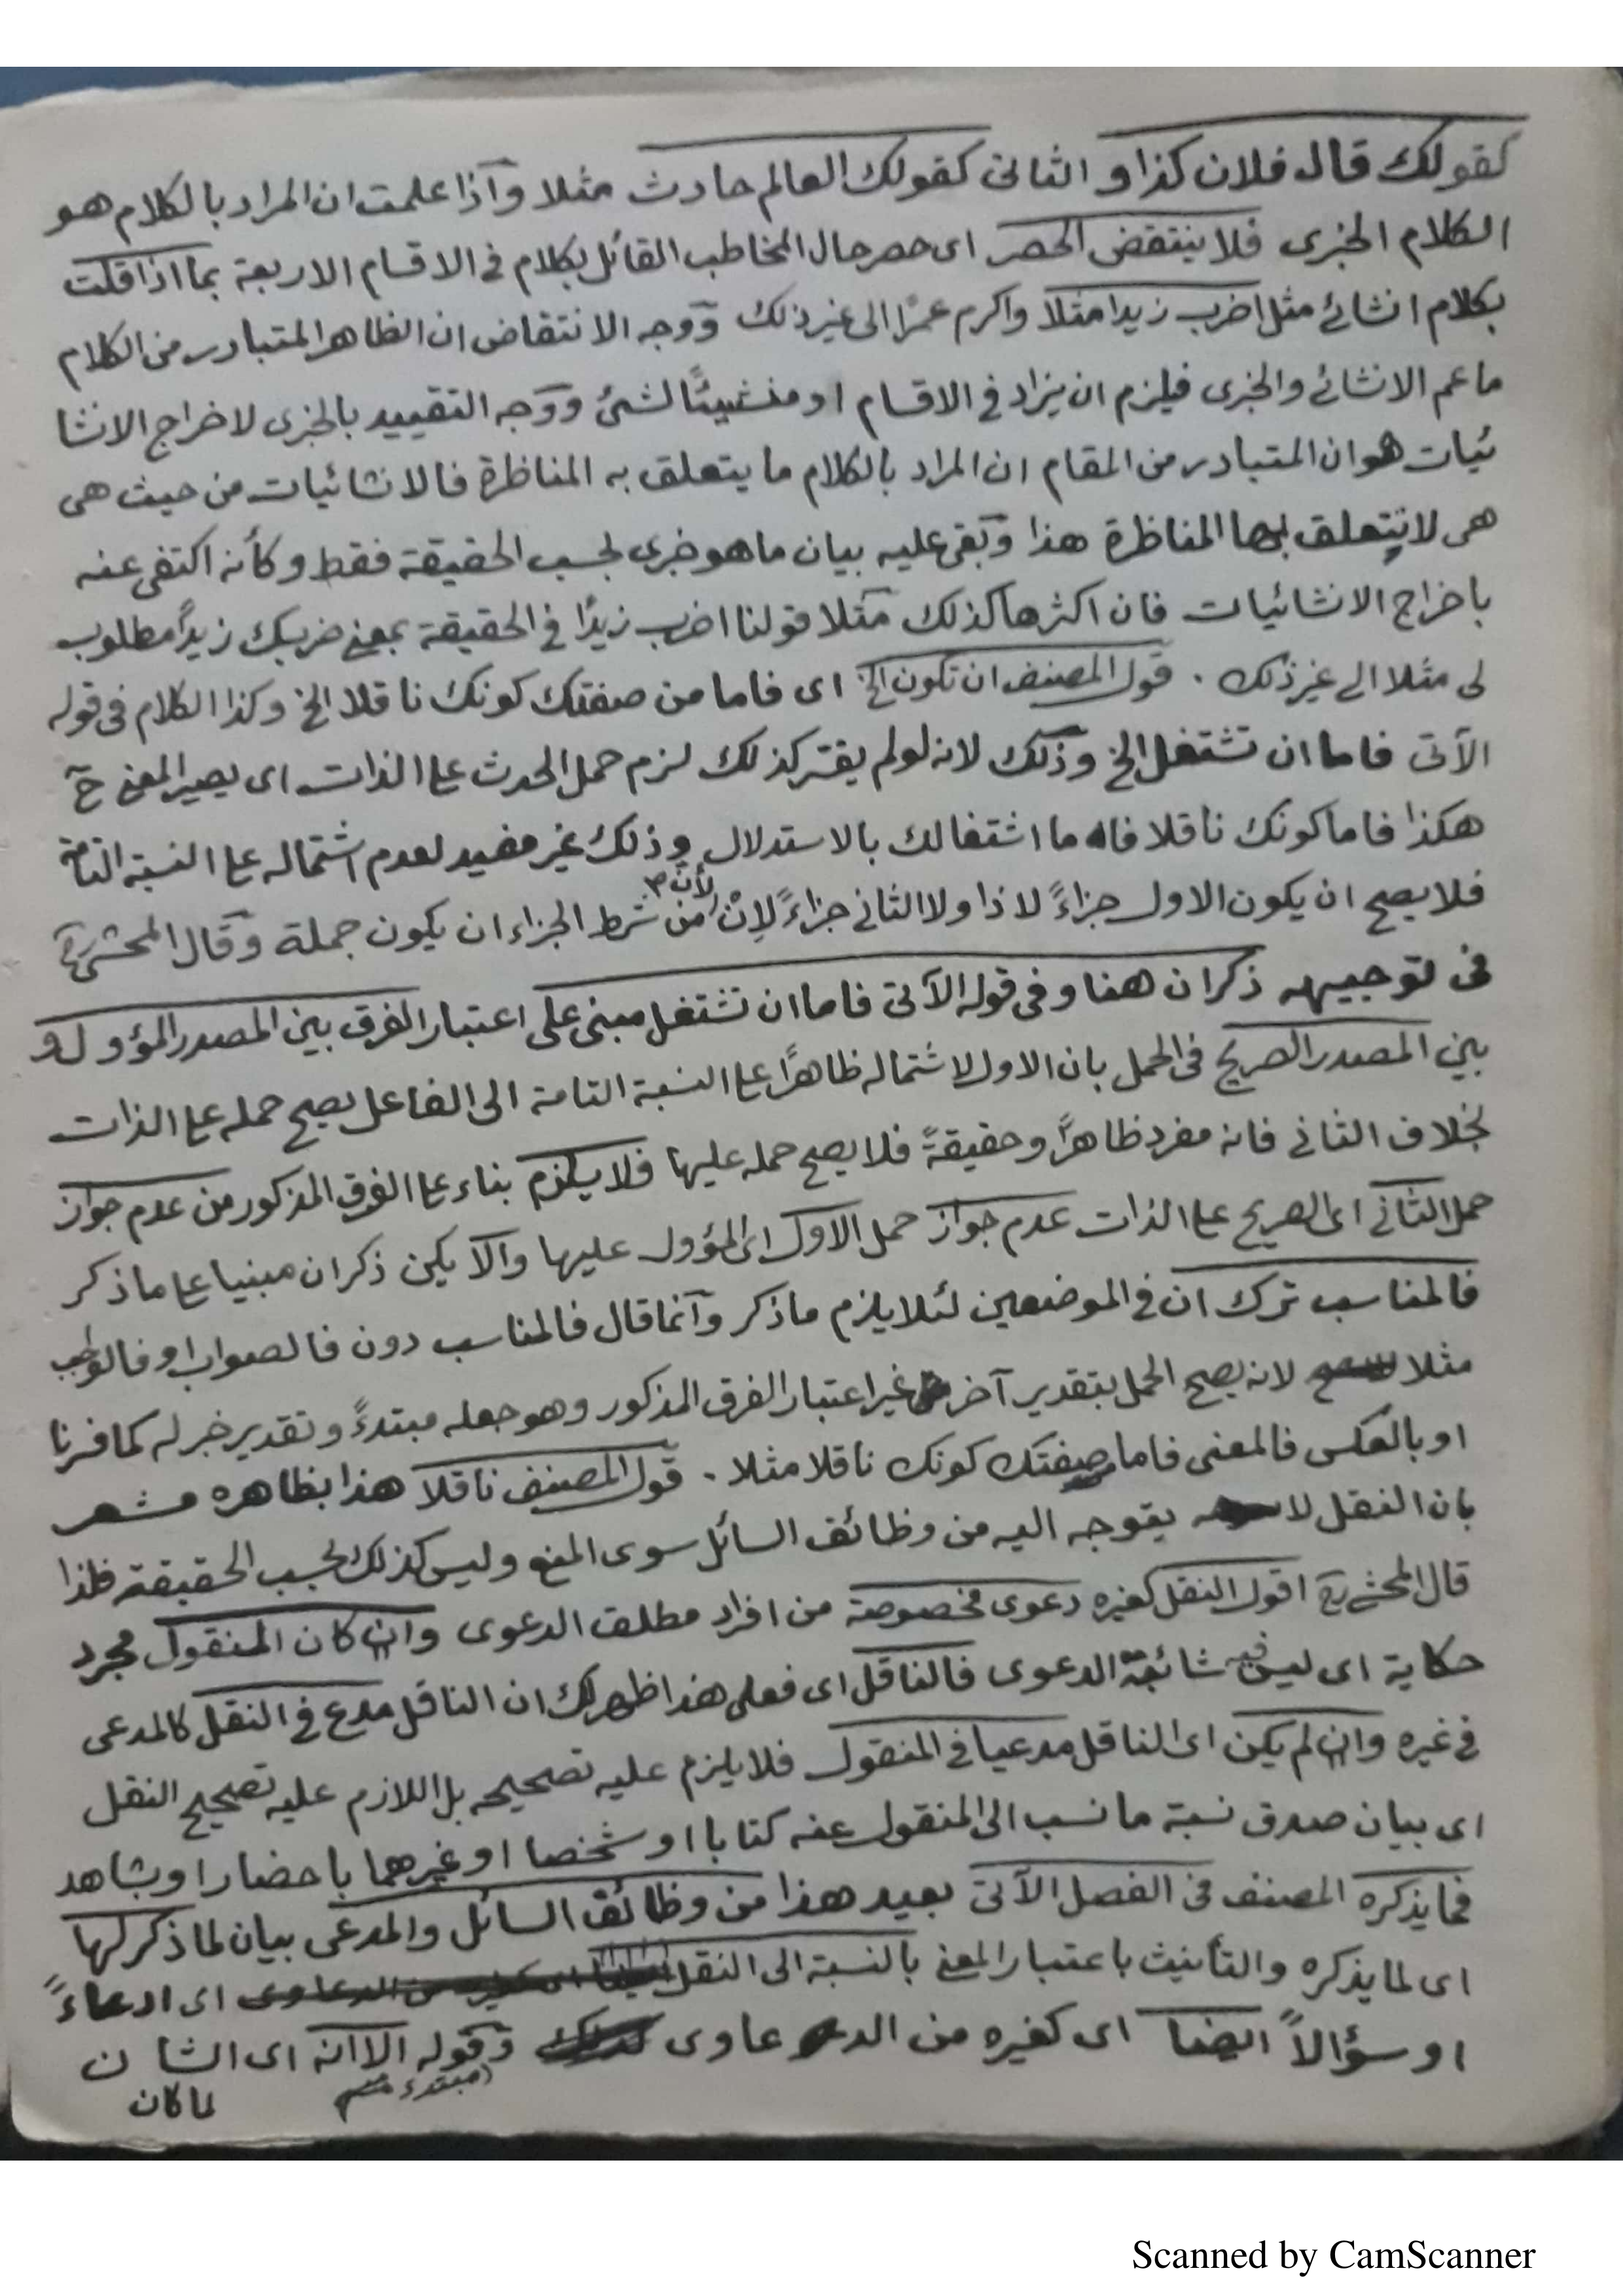 كقولك قال فلان كذا و الثانى كقولك العالم حادث مثلا واذا علمت ان المراد بالكلام هو
الكلام الخبرى فلا ينتقض الحصر اى حصر حال المخاطب القائل بكلام فى الاقسام الاربعة بما اذا قلت
بكلام انشائى مثل اضرب زيدا مثلا واكرم عمرًا الى غير ذلك ووجه الانتقاض ان الظاهر المتبادر من الكلام
ما عم الانشائى والخبرى فيلزم ان يزاد فى الاقسام او منشيئًا لشئ ووجه التقييد بالخبرى لاخراج الانشا
ئيات هو ان المتبادر من المقام ان المراد بالكلام ما يتعلق به المناظرة فالانشائيات من حيث هى
هى لا يتعلق بها المناظرة هذا وبقى عليه بيان ما هو خبرى بحسب الحقيقة فقط وكأنه اكتفى عنه
باخراج الانشائيات فان اكثرها كذلك مثلا قولنا اضرب زيدًا فى الحقيقة بمعنى ضربك زيدًا مطلوب
لى مثلا الى غير ذلك . قول المصنف ان تكون الخ اى فاما من صفتك كونك ناقلا الخ وكذا الكلام فى قوله
الآتى فاما ان تشتغل الخ وذلك لانه لو لم يقدر كذلك لزم حمل الحدث على الذات اى يصير المعنى ح
هكذا فاما كونك ناقلا فاما اشتغالك بالاستدلال وذلك غير مفيد لعدم اشتماله على النسبة التامة
فلا يصح ان يكون الاول جزاءً لاذا ولا الثانى جزاءً لإن لأن من شرط الجزاء ان يكون جملة وقال المحشى
فى توجيهه ذكر ان هنا وفى قوله الآتى فاما ان تشتغل مبنى على اعتبار الفرق بين المصدر المؤول و
بين المصدر الصريح فى الحمل بان الاول لاشتماله ظاهرًا على النسبة التامة الى الفاعل يصح حمله على الذات
بخلاف الثانى فانه مفرد ظاهرًا وحقيقةً فلا يصح حمله عليها فلا يلزم بناء على الفرق المذكور من عدم جواز
حمل الثانى اى الصريح على الذات عدم جواز حمل الاول اى المؤول عليها والا يكن ذكر ان مبنيا على ما ذكر
فالمناسب ترك ان فى الموضعين لئلا يلزم ما ذكر وانما قال فالمناسب دون فالصواب او فالواجب
مثلا لانه يصح الحمل بتقدير آخر غير اعتبار الفرق المذكور وهو جعله مبتدءً وتقدير خبر له كما قررنا
او بالعكس فالمعنى فاما صفتك كونك ناقلا مثلا . قول المصنف ناقلا هذا بظاهره مشعر
بان النقل لا يتوجه اليه من وظائف السائل سوى المنع وليس كذلك بحسب الحقيقة فلذا
قال المحشى اقول النقل كغيره دعوى مخصوصة من افراد مطلق الدعوى وان كان المنقول مجرد
حكاية اى ليس فيه شائبة الدعوى فالناقل اى فعلى هذا ظهر لك ان الناقل مدع فى النقل كالمدعى
فى غيره وان لم يكن اى الناقل مدعيا فى المنقول فلا يلزم عليه تصحيحه بل اللازم عليه تصحيح النقل
اى بيان صدق نسبة ما نسب الى المنقول عنه كتابا او شخصا او غيرهما باحضار او بشاهد
فما يذكره المصنف فى الفصل الآتى بعيد هذا من وظائف السائل والمدعى بيان لما ذكر لها
اى لما يذكره والتأنيث باعتبار المعنى بالنسبة الى النقل اى ادعاءً
او سؤالاً ايضا اى كغيره من الدعاوى وقوله الا انه اى الشان
مبتدء
لما كان
Scanned by CamScanner